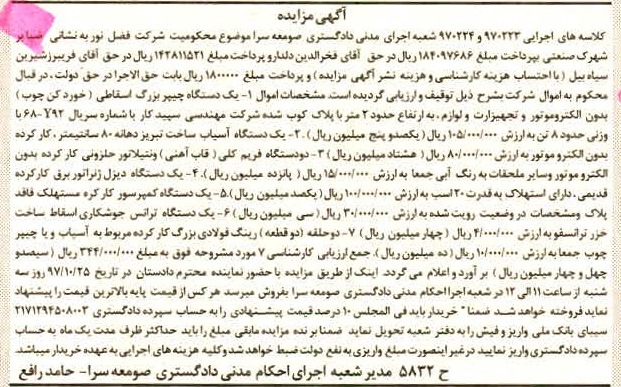 آگهی مزایده
کلاسه های اجرایی ۹۷۰۲۲۳ و ۹۷۰۲۲۴ شعبه اجرای مدنی دادگستری صومعه سرا موضوع محکومیت شرکت فضل نور به نشانی ضیابر
شهرک صنعتی بپرداخت مبلغ ۱۸۴۰۹۷۶۸۶ ریال در حق آقای فخرالدین دلدار و پرداخت مبلغ ۱۴۲۸۱۱۵۲۱ ریال در حق آقای فریبرز شیرین
سیاه بیل ( با احتساب هزینه کارشناسی و هزینه نشر آگهی مزایده ) و پرداخت مبلغ ۱۸۰۰۰۰۰ ریال بابت حق الاجرا در حق دولت، در قبال
محکوم به اموال شرکت بشرح ذیل توقیف و ارزیابی گردیده است. مشخصات اموال ۱- یک دستگاه چیپر بزرگ اسقاطی ( خورد کن چوب )
بدون الکتروموتور و تجهیزارت و لوازم، به ارتفاع حدود ۲ متر با پلاک کوب شده شرکت مهندسی سپید کار با شماره سریال ۷۹۲-۶۸ با
وزنی حدود ۸ تن به ارزش ۱۰۵/۰۰۰/۰۰۰ ریال (یکصدو پنج میلیون ریال). ۲- یک دستگاه آسیاب ساخت تبریز دهانه ۸۰ سانتیمتر، کار کرده
بدون الکترو موتور به ارزش ۸۰/۰۰۰/۰۰۰ ریال ( هشتاد میلیون ریال) ۳- دودستگاه فریم کلی ( قاب آهنی ) ونتیلاتور حلزونی کار کرده بدون
الکترو موتور وسایر ملحقات به رنگ آبی جمعا به ارزش ۱۵/۰۰۰/۰۰۰ ریال ( پانزده میلیون ریال). ۴- یک دستگاه دیزل ژنراتور برق کارکرده
قدیمی، دارای استهلاک به قدرت ۲۰ اسب به ارزش ۱۰۰/۰۰۰/۰۰۰ ریال (یکصد میلیون ریال).۵- یک دستگاه کمپرسور کار کره مستهلک فاقد
پلاک ومشخصات در وضعیت رویت شده به ارزش ۳۰/۰۰۰/۰۰۰ ریال (سی میلیون ریال) ۶- یک دستگاه ترانس جوشکاری اسقاط ساخت
خزر ترانسفو به ارزش ۴/۰۰۰/۰۰۰ ریال (چهار میلیون ریال) ۷- دوحلقه (دو قطعه) رینگ فولادی بزرگ کار کرده مربوط به آسیاب و یا چیپر
چوب جمعا به ارزش ۱۰/۰۰۰/۰۰۰ ریال (ده میلیون ریال). جمع ارزیابی کارشناسی ۷ مورد مشروحه فوق به مبلغ ۳۴۴/۰۰۰/۰۰۰ ریال (سیصدو
چهل و چهار میلیون ریال) بر آورد و اعلام می گردد. اینک از طریق مزایده با حضور نماینده محترم دادستان در تاریخ ۹۷/۱۰/۲۵ روز سه
شنبه از ساعت ۱۱ الی ۱۲ در شعبه اجرا احکام مدنی دادگستری صومعه سرا بفروش میرسد هر کس از قیمت پایه بالاترین قیمت را پیشنهاد
نماید فروخته خواهد شد ضمنا" خریدار باید فی المجلس ۱۰ درصد قیمت پیشنهادی را به حساب سپرده دادگستری ۲۱۷۱۲۹۴۵۰۸۰۰۲
سیبای بانک ملی واریز و فیش را به دفتر شعبه تحویل نماید ضمنا بر نده مزایده مابقی مبلغ را باید حداکثر ظرف مدت یک ماه به حساب
سپرده دادگستری واریز نمایید در غیر اینصورت مبلغ واریزی به نفع دولت ضبط خواهد شد و کلیه هزینه های اجرایی به عهده خریدار میباشد.
ح ۵۸۳۲ مدیر شعبه اجرای احکام مدنی دادگستری صومعه سرا- حامد رافع